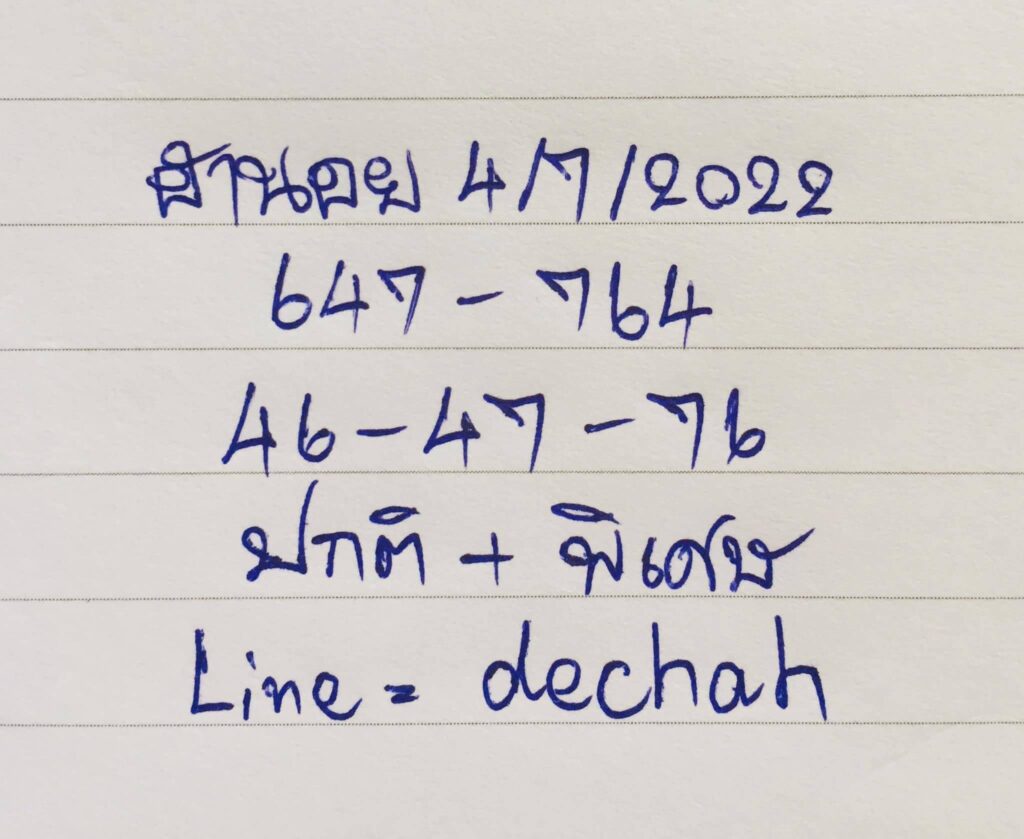 ฮานอย 4/7/2022
647 - 764
46 - 47 - 76
ปกติ + พิเศษ
Line = dechah